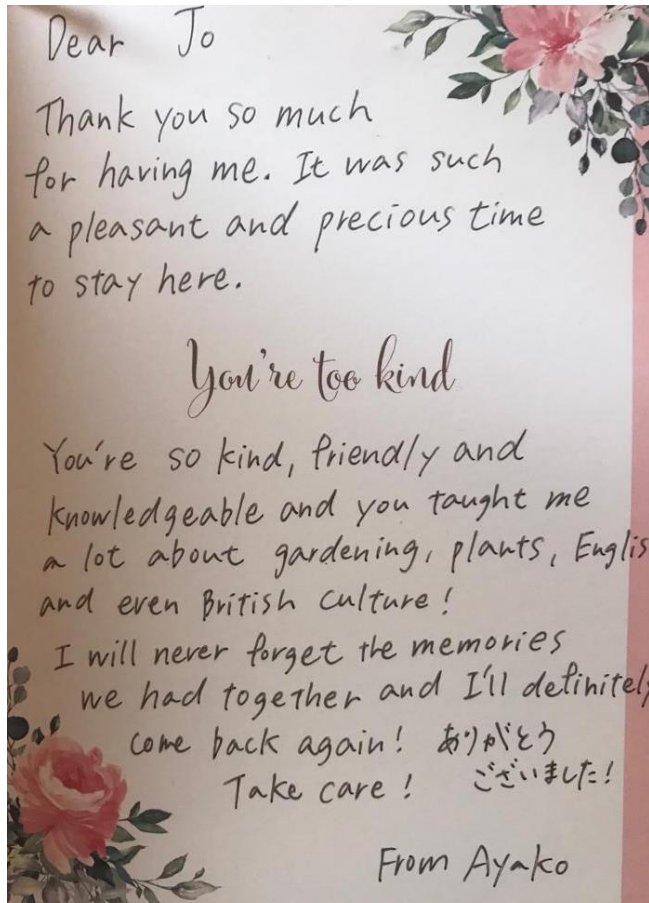 Dear Jo
Thank you so much
for having me. It was such
a pleasant and precious time
to stay here.
You're too kind
You're so kind, friendly and
knowledgeable and you taught me
a lot about gardening, plants, Englis
and even British culture!
I will never forget the memories
we had together and I'll definitely
come back again! ありがとう
Take care! ございました!
From Ayako